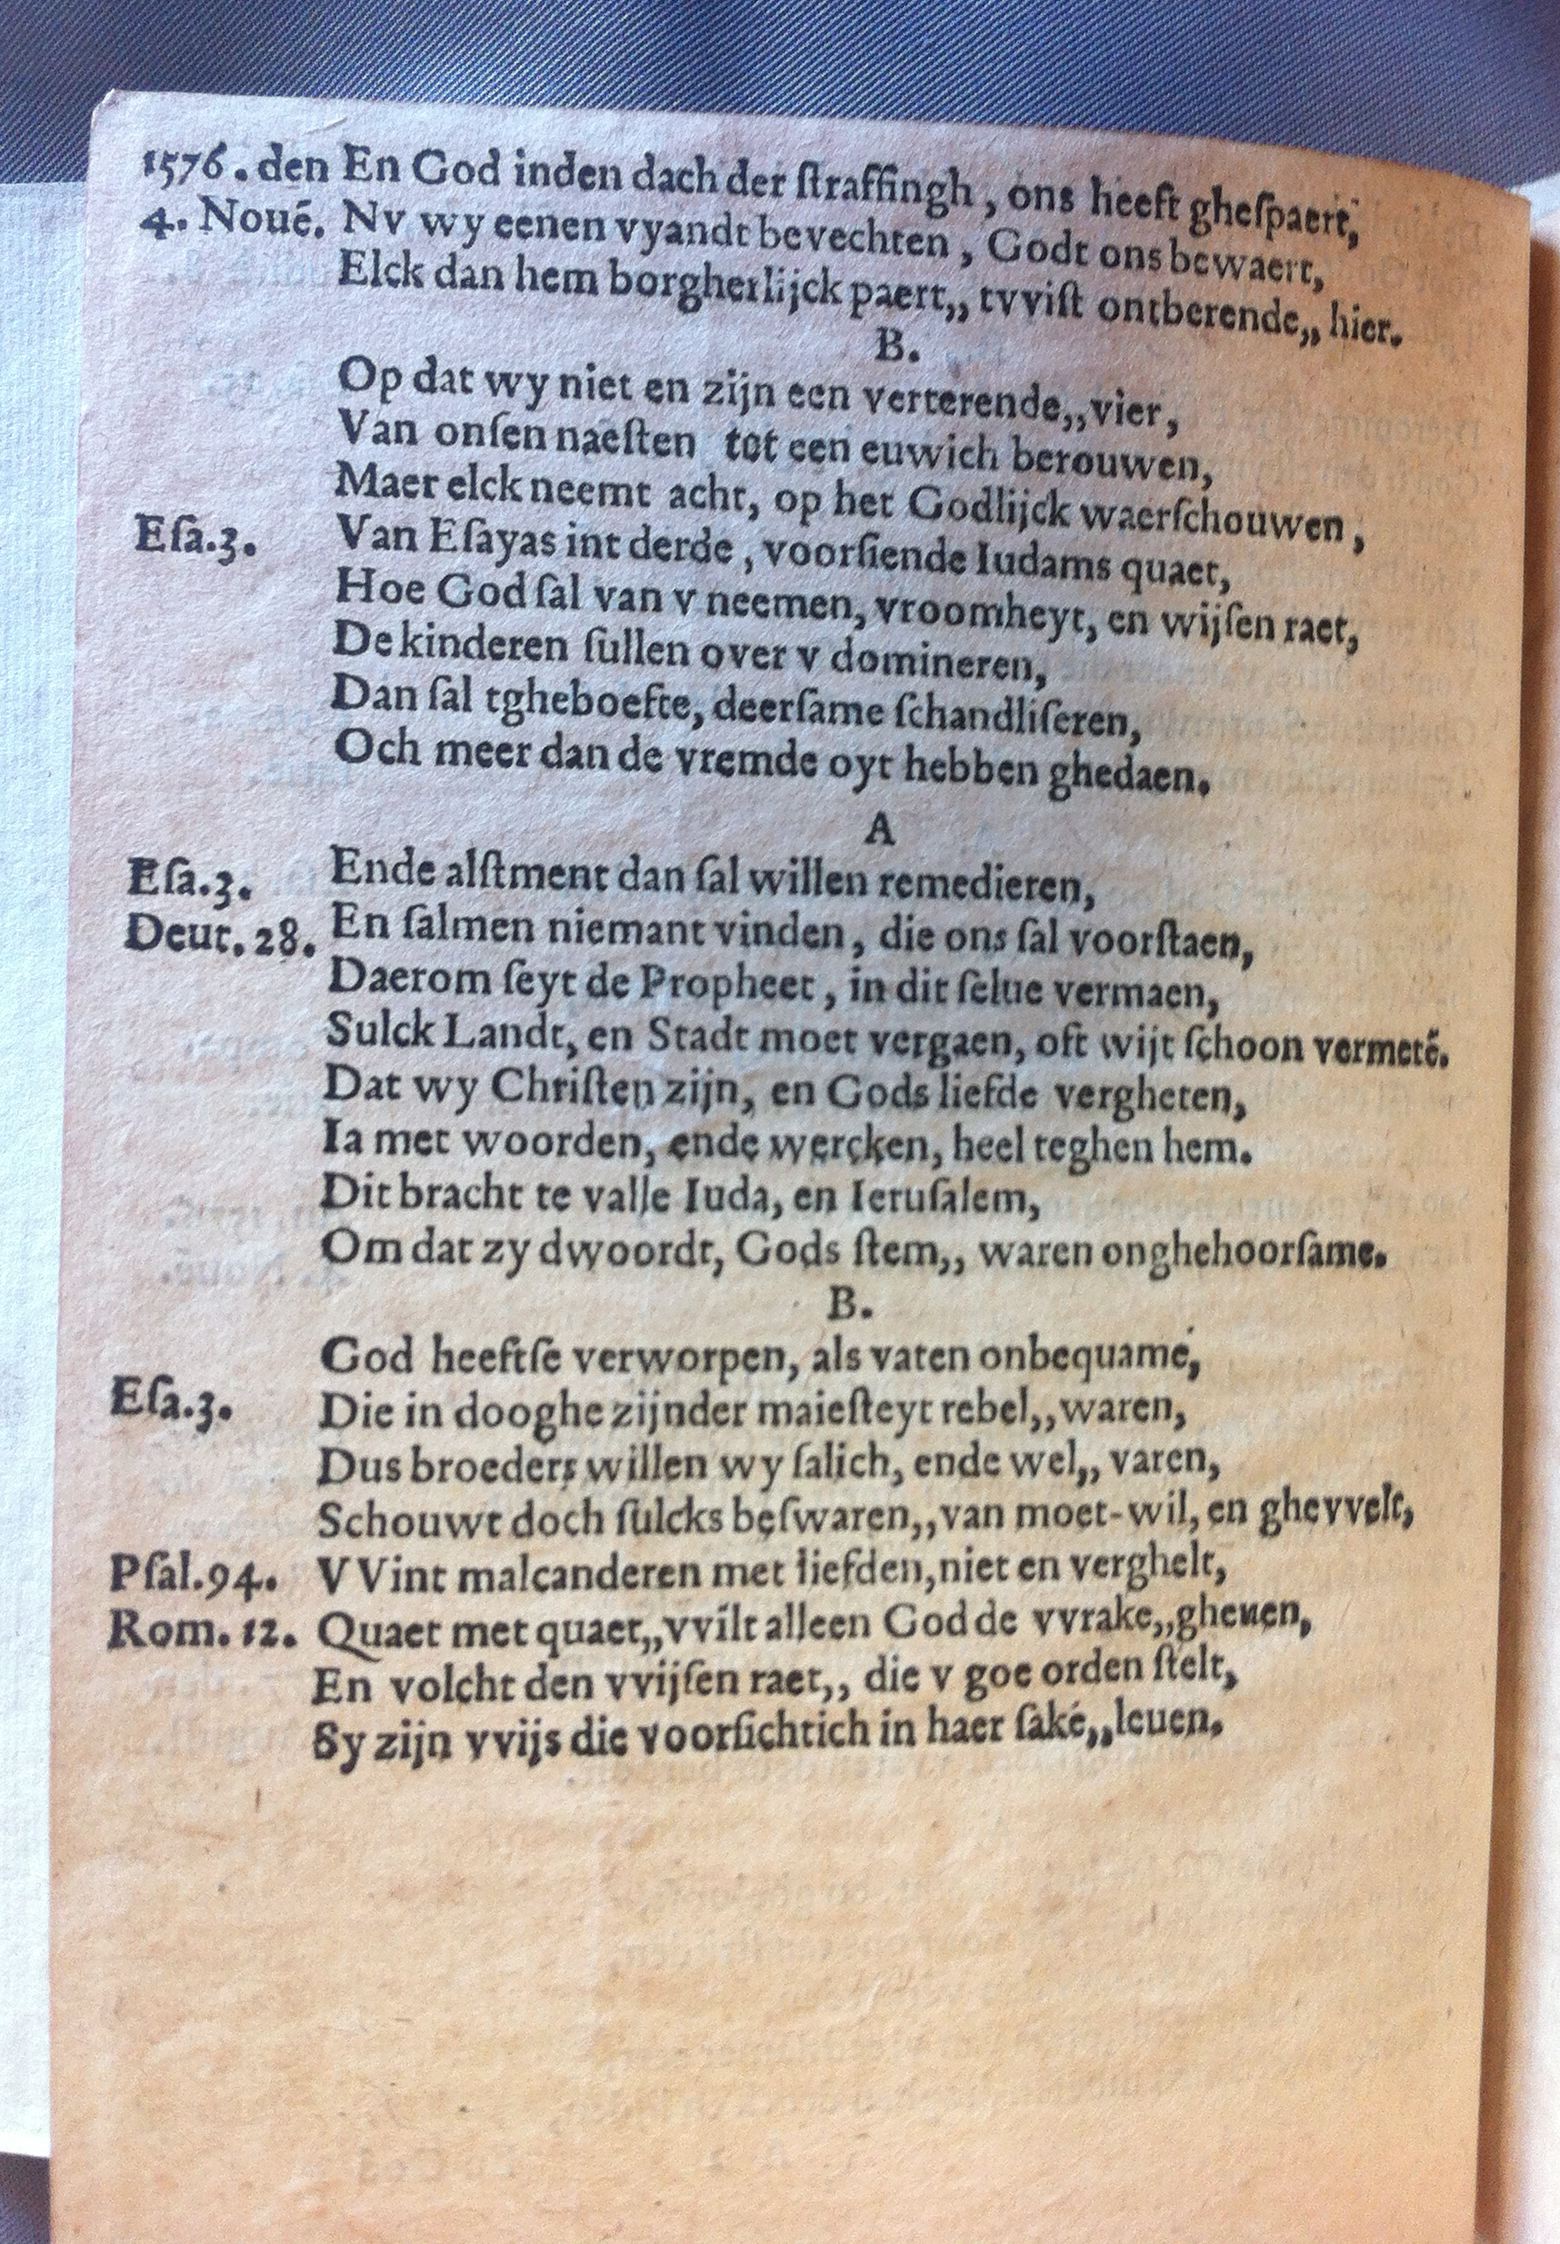 1576. den En God inden dach der ſtraffingh, ons heeft gheſpaert,
4. Noué. Nv wy eenen vyandt bevechten, Godt ons bewaert,
Elck dan hem borgherlijck paert,, tvviſt ontberende,, hier.
B.
Op dat wy niet en zijn een verterende,, vier,
Van onſen naeſten tot een euwich berouwen,
Maer elck neemt acht, op het Godlijck waerſchouwen,
Eſa.3. Van Eſayas int derde, voorſiende Iudams quaet,
Hoe God ſal van v neemen, vroomheyt, en wijſen raet,
De kinderen ſullen over v domineren,
Dan ſal tgheboefte, deerſame ſchandliſeren,
Och meer dan de vremde oyt hebben ghedaen.
A
Eſa.3. Ende alſtment dan ſal willen remedieren,
Deut. 28. En ſalmen niemant vinden, die ons ſal voorſtaen,
Daerom ſeyt de Propheet, in dit ſelue vermaen,
Sulck Landt, en Stadt moet vergaen, oft wijt ſchoon vermeté.
Dat wy Chriſten zijn, en Gods liefde vergheten,
Ia met woorden, ende wercken, heel teghen hem.
Dit bracht te valle Iuda, en Ieruſalem,
Om dat zy dwoordt, Gods ſtem,, waren onghehoorſame.
B.
God heeftſe verworpen, als vaten onbequame,
Eſa.3. Die in dooghe zijnder maieſteyt rebel,, waren,
Dus broeders willen wy ſalich, ende wel,, varen,
Schouwt doch ſulcks beſwaren,, van moet-wil, en ghevvelt,
Pſal.94. VVint malcanderen met liefden, niet en verghelt,
Rom. 12. Quaet met quaet,, vvilt alleen God de vvrake,, gheuen,
En volcht den vvijſen raet,, die v goe orden ſtelt,
Sy zijn vvijs die voorſichtich in haer ſaké,, leuen.